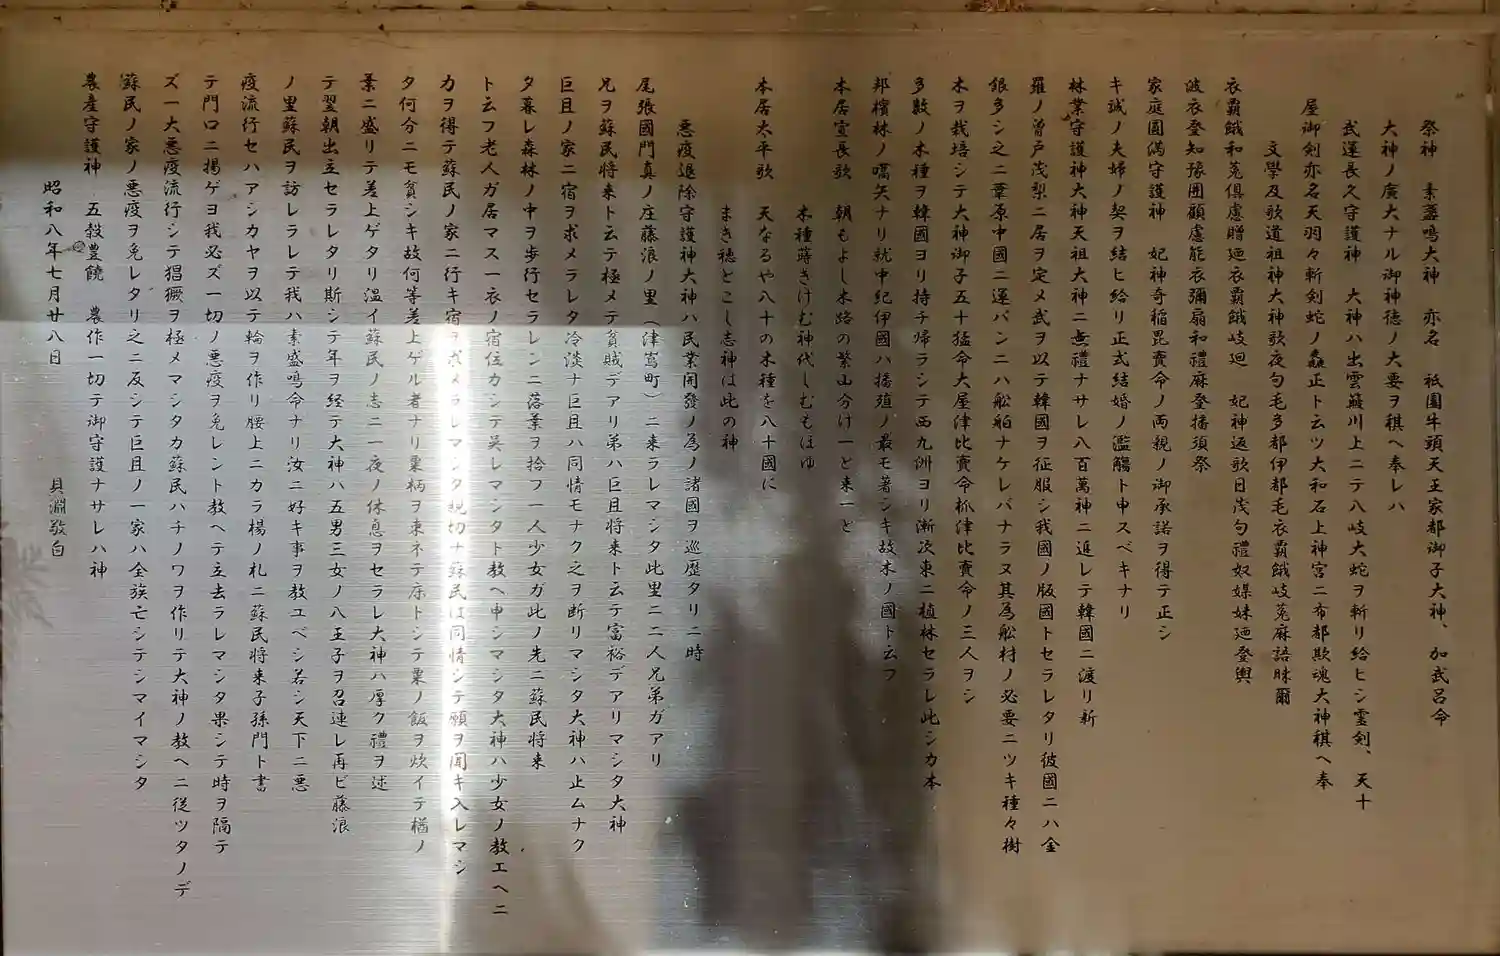 祭神　素盞鳴大神　亦名　祇園牛頭天王家都御子大神、加武呂命
大神ノ廣大ナル御神徳ノ大要ヲ稘ヘ奉レハ
武運長久守護神　大神ハ出雲簸川上ニテ八岐大蛇ヲ斬リ給ヒシ霊剣、天十
屋御剣亦名天羽々斬剣蛇ノ麁正ト云ツ大和石上神宮ニ布都欺魂大神稘ヘ奉
文學及歌道祖神大神歌夜句毛多都伊都毛衣覇餓岐菟麻語昧爾
衣覇餓和菟倶盧贈廼衣覇餓岐廻　妃神返歌曰茂句禮奴媒妹廼登輿
波衣登知豫囲顧慮能衣彌扇和禮麻登播須祭
家庭圓満守護神　妃神奇稲毘賣命ノ両親ノ御承諾ヲ得テ正シ
キ誠ノ夫婦ノ契ヲ結ヒ給リ正式結婚ノ濫觴ト申スベキナリ
林業守護神大神天祖大神ニ無禮ナサレ八百萬神ニ追レテ韓國ニ渡リ新
羅ノ曾戸茂梨ニ居ヲ定メ武ヲ以テ韓國ヲ征服シ我國ノ版國トセラレタリ彼國ニハ金
銀多シ之ニ葦原中國ニ運バンニハ舩舶ナケレバナラヌ其為舩村ノ必要ニツキ種々樹
木ヲ栽培シテ大神御子五十猛命大屋津比賣命柧津比賣命ノ三人ヲシ
多数ノ木種ヲ韓國ヨリ持チ帰ラシテ西九洲ヨリ漸次東ニ植林セラレ此シカ本
邦檳林ノ嚆矢ナリ就中紀伊國ハ播殖ノ最モ著シキ故木ノ國ト云フ
本居宣長歌　朝もよし木路の繁山分け一ど来一ど
木種蒔きけむ神代しむもほゆ
本居太平歌　天なるや八十の木種を八十國に
まき穂とこし志神は此の神
悪疫退除守護神大神ハ民業開發ノ為ノ諸國ヲ巡歴タリニ時
尾張國門真ノ庄藤浪ノ里（津嶌町）ニ来ラレマシタ此里ニ二人兄弟ガアリ
兄ヲ蘇民将来ト云テ極メテ貧賎デアリ弟ハ巨且将来ト云テ富裕デアリマシタ大神
巨且ノ家ニ宿ヲ求メラレタ冷淡ナ巨且ハ同情モナク之ヲ断リマシタ大神ハ止ムナク
夕暮レ森林ノ中ヲ歩行セラレンニ落葉ヲ拾フ一人少女ガ此ノ先ニ蘇民将来
ト云フ老人ガ居マス一衣ノ宿位カシテ呉レマンタト教ヘ申シマシタ大神ハ少女ノ教エヘニ
カヲ得テ蘇民ノ家ニ行キ宿ヲ求メラレマシタ親切ナ蘇民は同情シテ願ヲ聞キ入レマシ
タ何分ニモ貧シキ故何等差上ゲル者ナリ粟柄ヲ束ネテ床トシテ粟ノ飯ヲ炊イテ楢ノ
葉ニ盛リテ差上ゲタリ温イ蘇民ノ志ニ一夜ノ休息ヲセラレ大神ハ厚ク禮ヲ述
テ翌朝出立セラレタリ斯シテ年ヲ経テ大神ハ五男三女ノ八王子ヲ召連レ再ビ藤浪
ノ里蘇民ヲ訪レラレテ我ハ素盛鳴命ナリ汝ニ好キ事ヲ教ユベシ若シ天下ニ悪
疫流行セハアシカヤヲ以テ輪ヲ作リ腰上ニカラ楊ノ札ニ蘇民将来子孫門ト書
テ門口ニ揚ゲヨ我必ズ一切ノ悪疫ヲ免レント教ヘテ立去ラレマシタ果シテ時ヲ隔テ
ズ一大悪疫流行シテ猖獗ヲ極メマシタカ蘇民ハチノワヲ作リテ大神ノ教ヘニ従ツタノデ
蘇民ノ家ノ悪疫ヲ免レタリ之ニ反シテ巨且ノ一家ハ全族亡シテシマイマシタ
農産守護神　五穀豊饒　農作一切テ御守護ナサレハ神
昭和八年七月廿八日　貝淵敬白